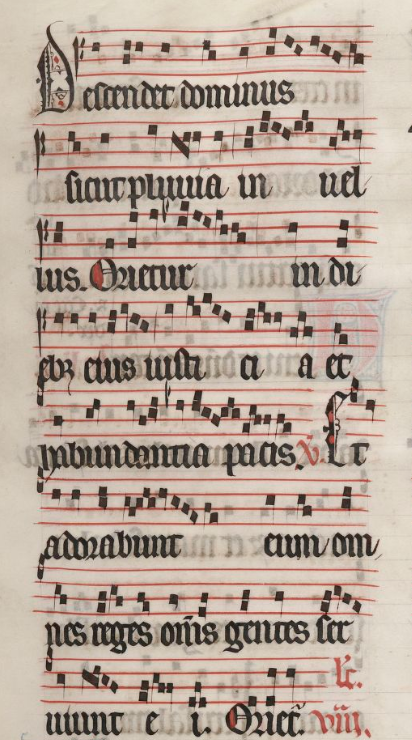 Descendet dominus
sicut pluuia in uel
lus. Orietur in di
ebꝫ eius iusti ci a et
habundantia pacis. V̄. Et
adorabunt cum om
nes reges om̄s gentes ser
uiunt e i. Oriet̄. viii.